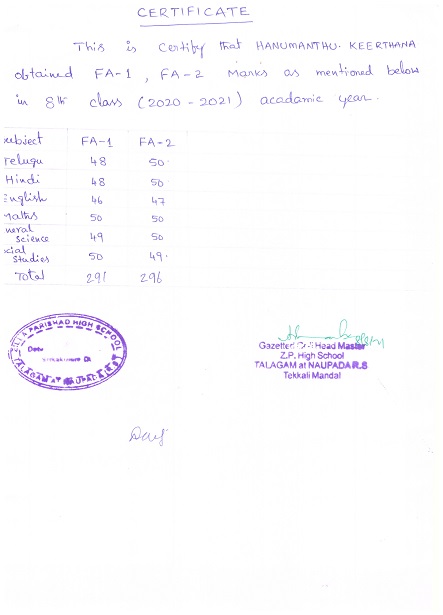 CERTIFICATE
This is Certify that HANUMANTHU. KEERTHANA
obtained FA-1, FA-2 Marks as mentioned below
in 8th class (2020-2021) acadamic year.
subject FA-1 FA-2
Telugu 48 50
Hindi 48 50
English 46 47
Maths 50 50
neral Science 49 50
cial Studies 50 49
Total 291 296
PARISHAD HIGH SCHOOL
Date
TALAGAM AT NAUPADA R.S
Gazetted Head Master
Z.P. High School
TALAGAM at NAUPADA R.S
Tekkali Mandal